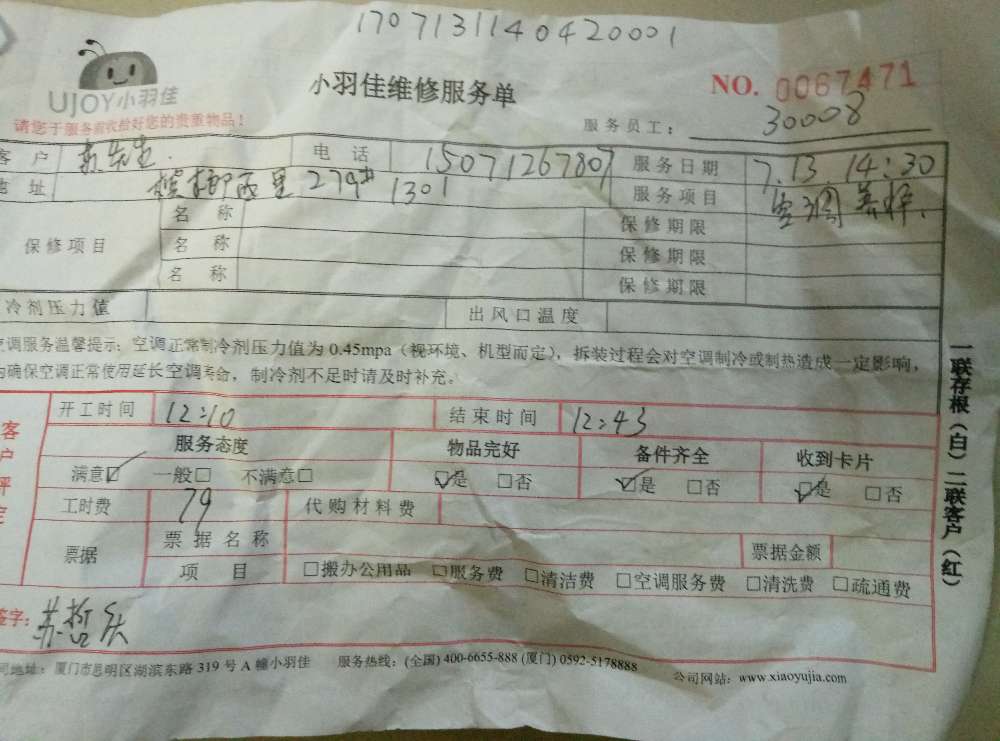 1707131140420001
UJOY小羽佳
小羽佳维修服务单
NO. 0067471
请您于服务前收拾好您的贵重物品！
服务员工： 30008
客户 苏先生 电话 15071267807 服务日期 7.13. 14:30
地址 槟榔西里279# 1301 服务项目 空调
保修项目 名称 保修期限
名称 保修期限
名称 保修期限
冷剂压力值 出风口温度
空调服务温馨提示：空调正常制冷剂压力值为 0.45mpa（视环境、机型而定），拆装过程会对空调制冷或制热造成一定影响，
为确保空调正常使用延长空调寿命，制冷剂不足时请及时补充。
一联存根（白）二联客户（红）
客户评定
开工时间 12:10 结束时间 12:43
服务态度 物品完好 备件齐全 收到卡片
满意☑ 一般□ 不满意□ ☑是 □否 ☑是 □否 ☑是 □否
工时费 79 代购材料费
票据 票据名称 票据金额
项目 □搬办公用品 □服务费 □清洁费 □空调服务费 □清洗费 □疏通费
签字：苏哲
司地址：厦门市思明区湖滨东路 319 号 A 幢小羽佳 服务热线：(全国) 400-6655-888 (厦门) 0592-5178888
公司网站：www.xiaoyujia.com